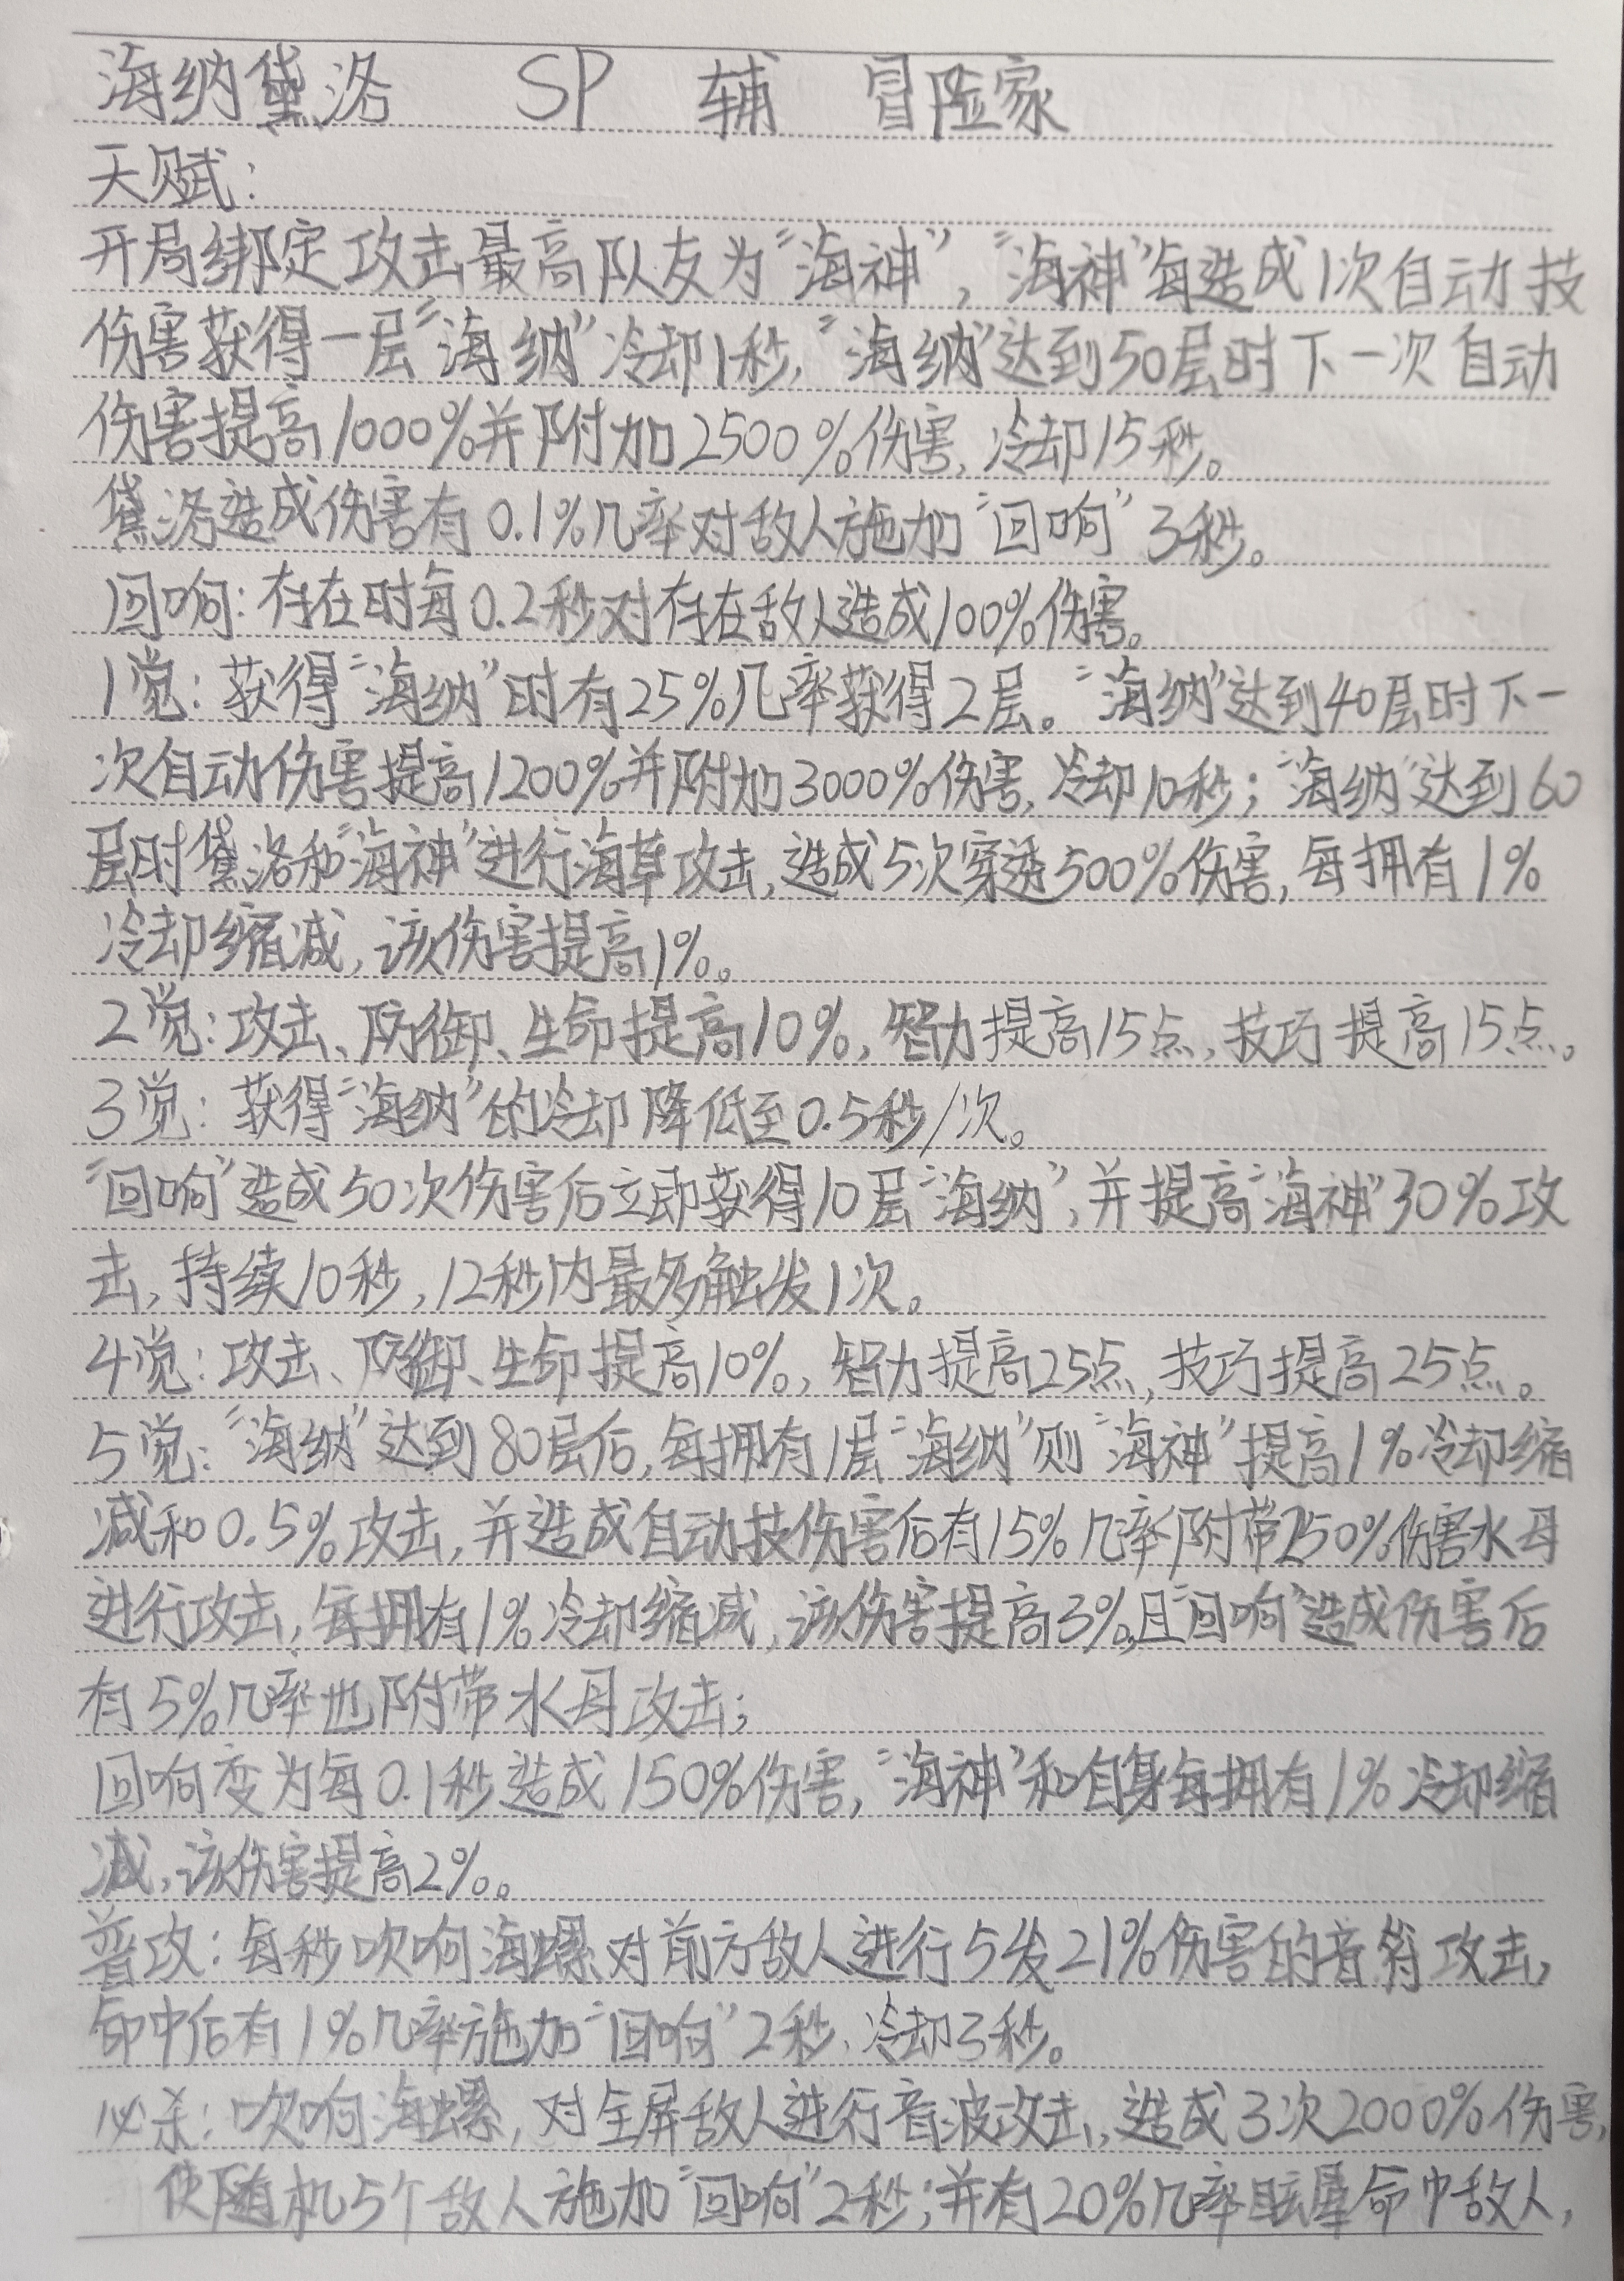 海纳黛洛 SP 辅 冒险家
天赋:
开局绑定攻击最高队友为“海神”,“海神”每造成1次自动技
伤害获得一层“海纳”冷却1秒,“海纳”达到50层时下一次自动
伤害提高1000%并附加2500%伤害,冷却15秒。
黛洛造成伤害有0.1%几率对敌人施加“回响”3秒。
回响:存在时每0.2秒对存在敌人造成100%伤害。
1觉:获得“海纳”时有25%几率获得2层。“海纳”达到40层时下一
次自动伤害提高1200%并附加3000%伤害,冷却10秒;“海纳”达到60
层时黛洛和“海神”进行海草攻击,造成5次穿透500%伤害,每拥有1%
冷却缩减,该伤害提高1%。
2觉:攻击、防御、生命提高10%,智力提高15点,技巧提高15点。
3觉:获得“海纳”的冷却降低至0.5秒/次。
“回响”造成50次伤害后立即获得10层“海纳”,并提高“海神”30%攻
击,持续10秒,12秒内最多触发1次。
4觉:攻击、防御、生命提高10%,智力提高25点,技巧提高25点。
5觉:“海纳”达到80层后,每拥有1层“海纳”则“海神”提高1%冷却缩
减和0.5%攻击,并造成自动技伤害后有15%几率附带250%伤害水母
进行攻击,每拥有1%冷却缩减,该伤害提高3%,且“回响”造成伤害后
有5%几率也附带水母攻击;
回响变为每0.1秒造成150%伤害,“海神”和自身每拥有1%冷却缩
减,该伤害提高2%。
普攻:每秒吹响海螺对前方敌人进行5发21%伤害的音符攻击,
命中后有1%几率施加“回响”2秒,冷却3秒。
必杀:吹响海螺,对全屏敌人进行音波攻击,造成3次2000%伤害,
使随机5个敌人施加“回响”2秒;并有20%几率眩晕命中敌人,